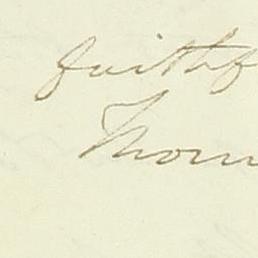 faithf
Thom